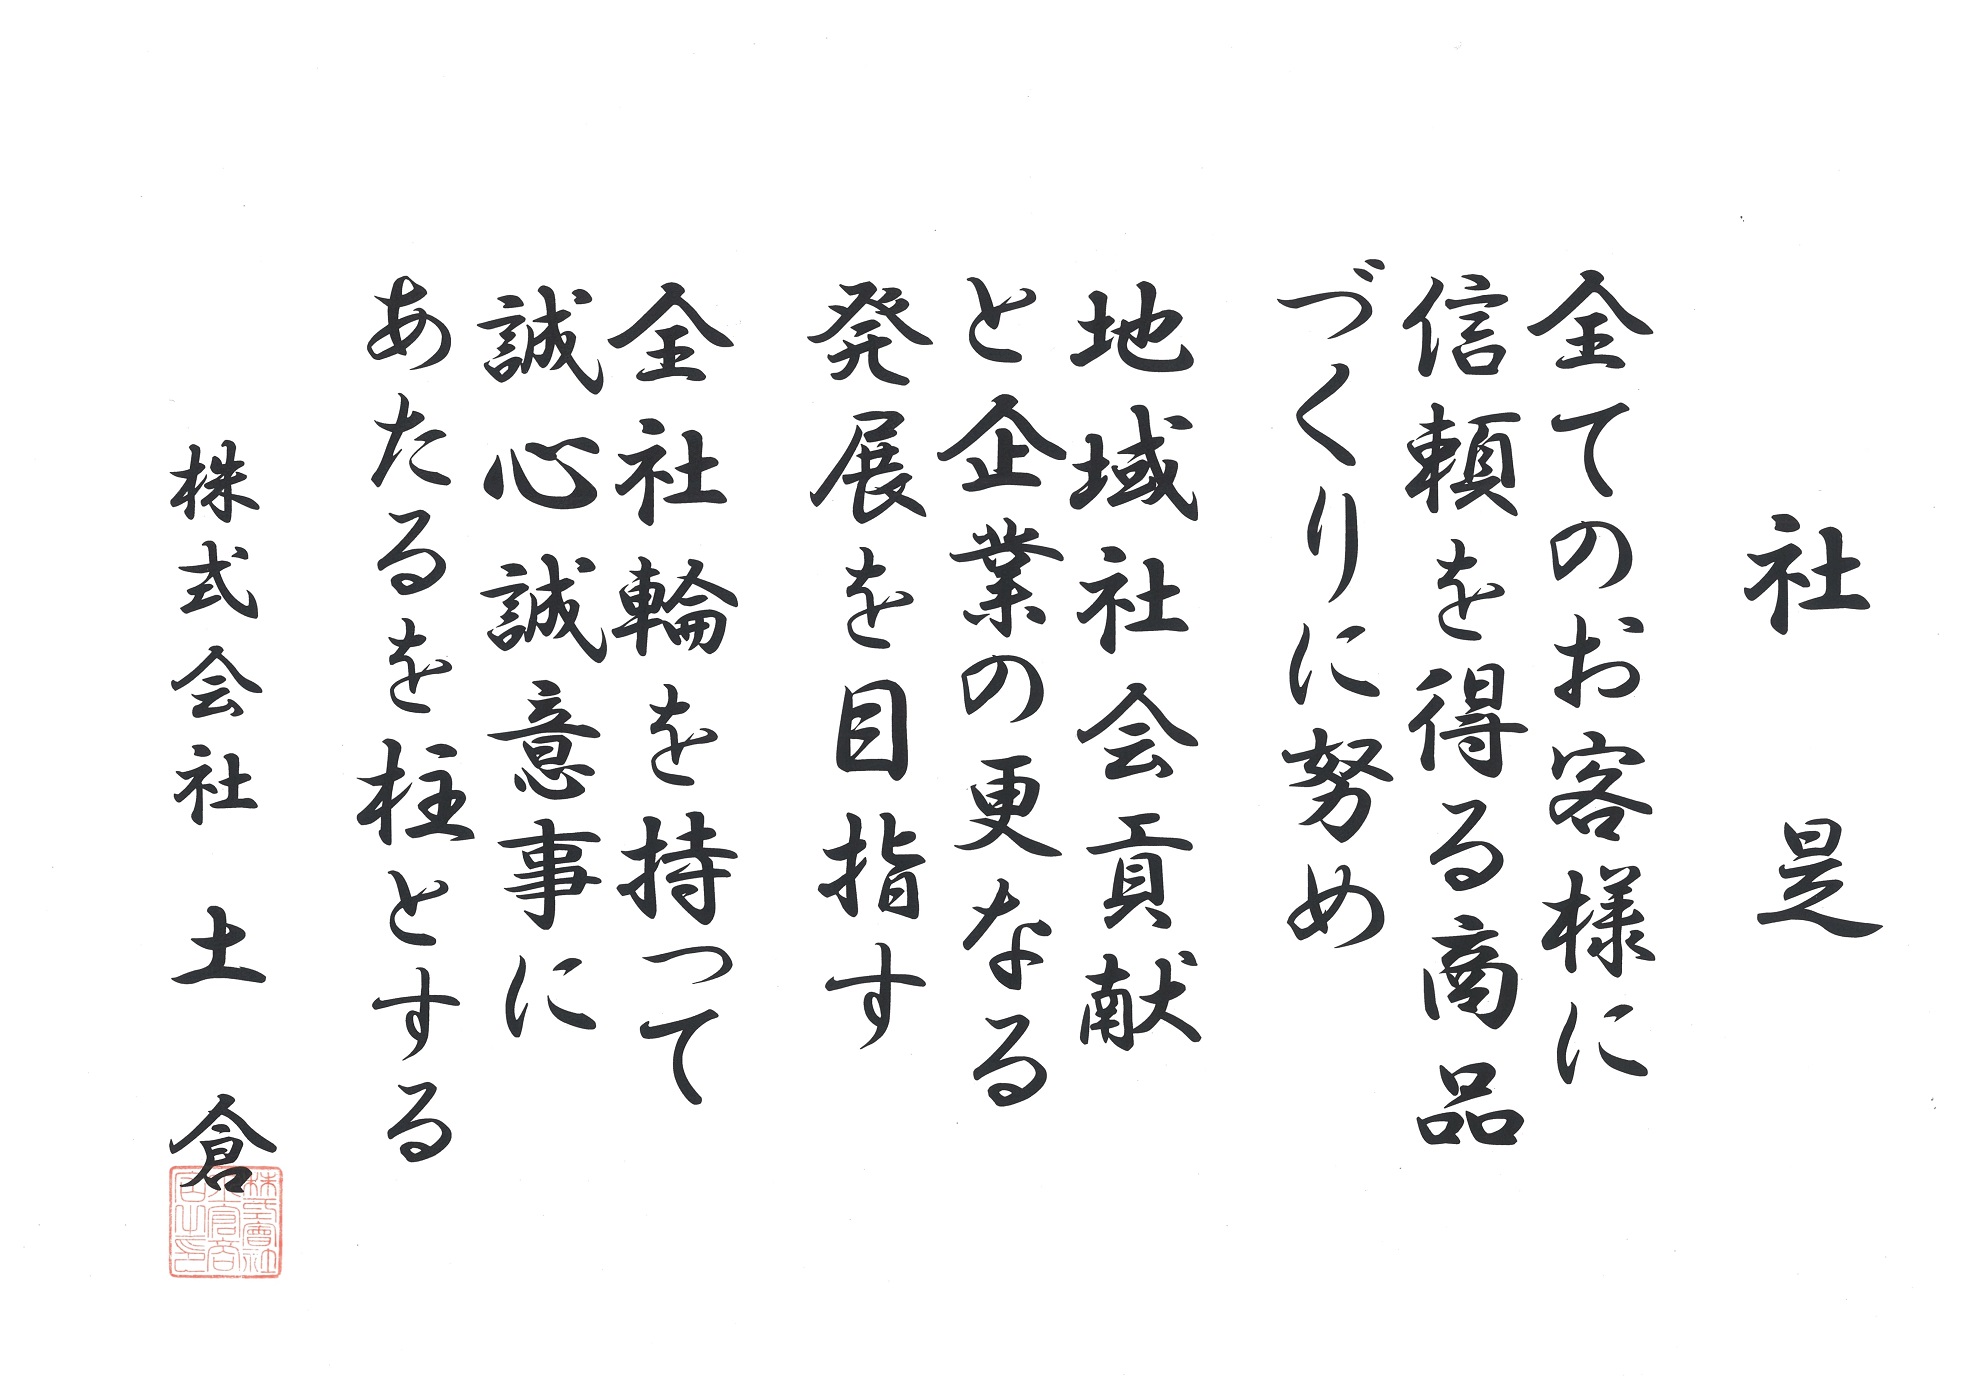 社是
全てのお客様に
信頼を得る商品
づくりに努め
地域社会貢献
と企業の更なる
発展を目指す
全社輪を持って
誠心誠意事に
あたるを柱とする
株式会社 土倉